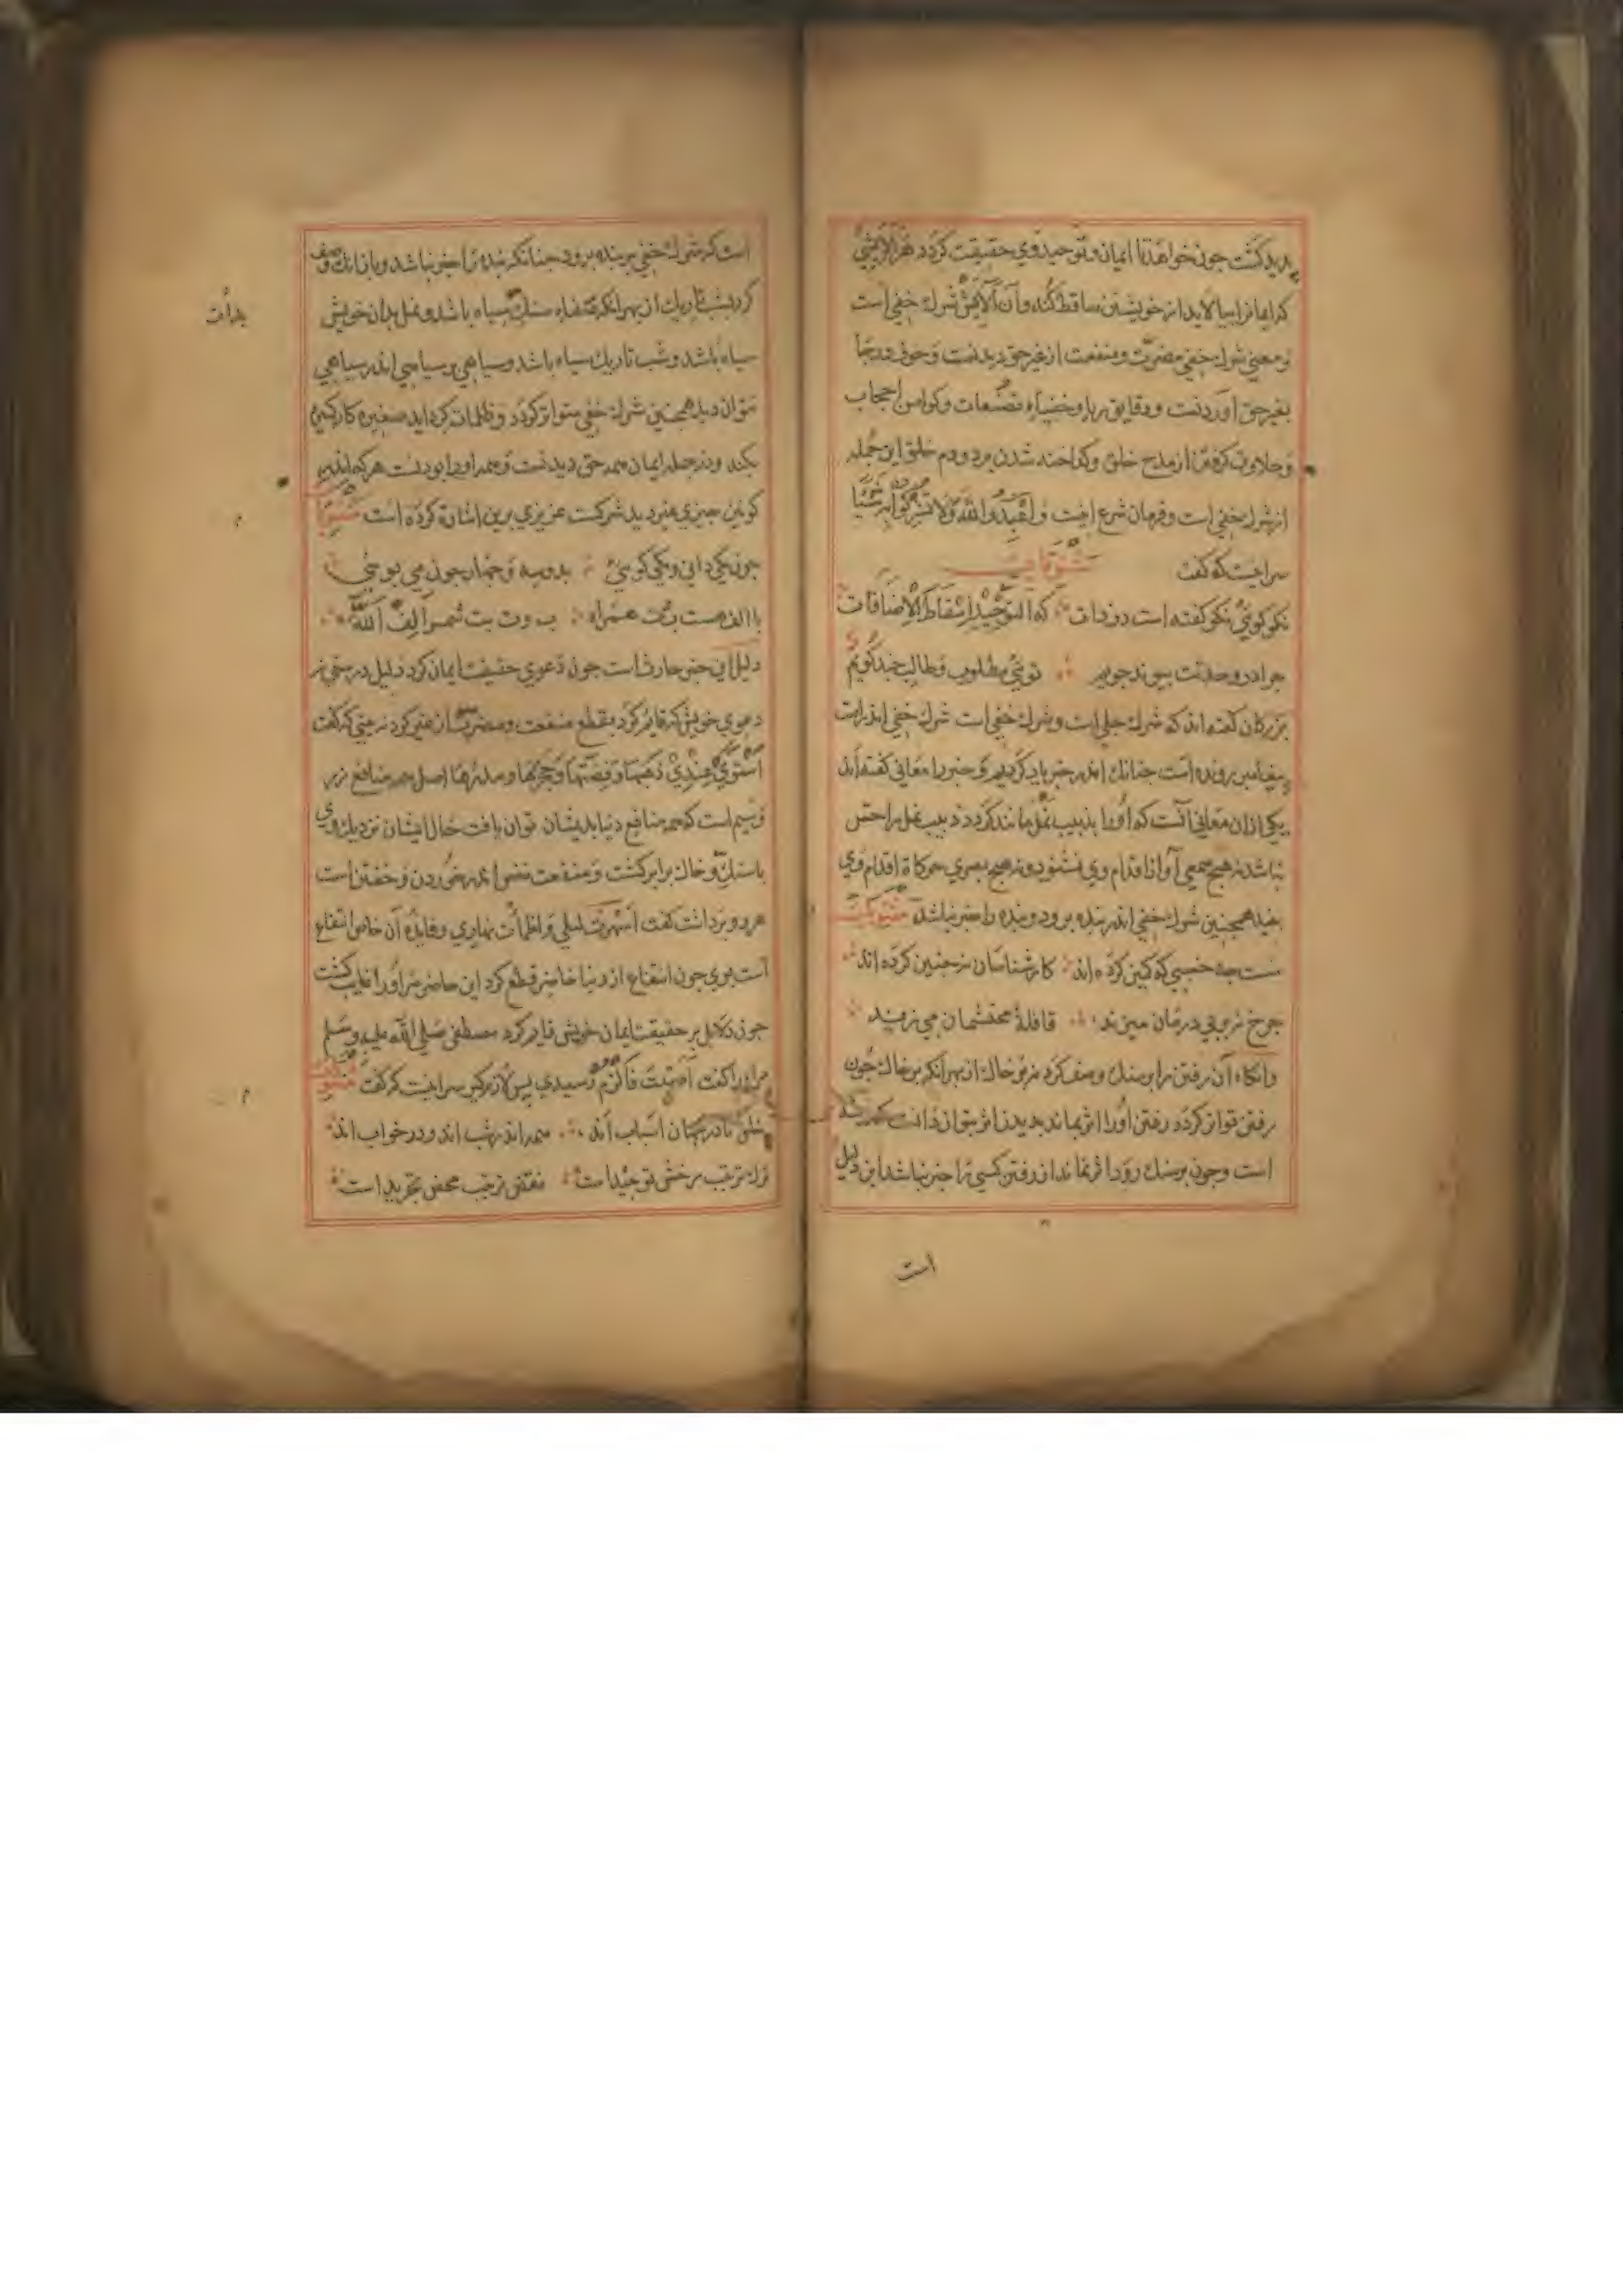 پدید کشت جون خواهد تا ایمان و توحید وی حقیقت کردد هر الایشی
که ایمانرا بیالاید از خویشتن ساقط کند و آن آلایش شرك خفی است
و معنی شرك خفی مضرت و منفعت از غیر حق دیدنست و خوف و رجا
بغیر حق اوردنست و دقایق ریا و خفیات تصنعات و کوامن اعجاب
و حلاوت کرفتن از مدح خلق و کداخته شدن برد و ذم خلق این جمله
از شرك خفی است و فرمان شرع اینست وَاعْبُدُوا اللهَ وَلَا تُشْرِكُوا بِهِ شَيْئًا
سراینست که کفت
نکو کوئی نکو کفته است در ذات که التَّوْحِیْدُ اِسْقَاطُ الْاِضَافَات
جرا در وحدتت پیوند جویم توئی مطلوب و طالب چند کویم
بزرکان کفته اند که شرك جلی است و شرك خفی است شرك خفی اندر امت
پیغامبر رونده است جنانك اندر خبر یاد کردیم و خبر را معانی کفته اند
یکی ازان معانی آنست که او را بذبیب نمل مانند کردد ذبیب نمل را حس
نباشد نه هیج سمعی آواز اقدام وی بشنود و نه هیج بصری حرکاة اقدام وی
بیند همجنین شرك خفی اندر بنده برود و بنده را خبر نباشد
مست جه خسبی که کمین کرده اند کارشناسان نه جنین کرده اند
وانکاه آن رفتن را بر سنك وصف کرد نه بر خاك از بهر آنکه بر خاك جون
رفتن تواتر کرده رفتن او را اثر بماند بدیدن اثر بتوان دانست که رفته
است و جون بر سنك رود اثر نماند از رفتن کسی را خبر نباشد این دلیل
است
است که شرك خفی بر بنده برود جنانکه بنده را خبر نباشد و باز انك وصف
کرد بشب تاریك از بهر انکه صفاه سنك سیاه باشد و نمل بدان خویش
بذات
سیاه باشد و شب تاریك سیاه باشد و سیاهی بر سیاهی اندر سیاهی
نتوان دید همجنین شرك خفی متواتر کردد و ظلمات کرد اید صغیره کار کبیره
بکند و در جمله ایمان همه حق دیدنست و همه او را بودنست هر که اندر
کونین جیزی غیر دید شرکست عزیزی برین اشارة کرده است مثنوی
جون یکی دانی و یکی کوئی بدو و سه و جهار جون می پوئی
با الف هست ب و ت همراه ب و ت بت شمر الف اَللّٰه
دلیل این خبر حارث است جون دعوی حقیقت ایمان کرد دلیل درستی بر
دعوی خویش که قایم کرد بقطع منفعت و مضرت از غیر کرد نه بینی که کفت
اَسْتَوٰی عِنْدِیْ ذَهَبُهَا وَفِضَّتُهَا وَحَجَرُهَا وَمَدَرُهَا اصل همه منافع زر
و سیم است که همه منافع دنیا بدیشان توان یافت حال ایشان نزدیك وی
با سنك و خاك برابر کشت و منفعت نفس اندر خوردن و خفتن است
هر دو برداشت کفت اَسْهَرْتُ لیلی وَاَظْمَأتُ نهاری و فایده آن خاص انتفاع
است بوی جون انتفاع از دنیا حاضر قطع کرد این حاضر مر او را غایب کشت
جون دلایل بر حقیقت ایمان خویش قایم کرد مصطفی صلی الله علیه وسلم
مر او را کفت اَصَبْتَ فَالْزَمْ رسیدی پس لازم کیر سراینست که کفت مثنوی
خلق تا در جهان اسباب اند همه اندر شب اند و در خواب اند